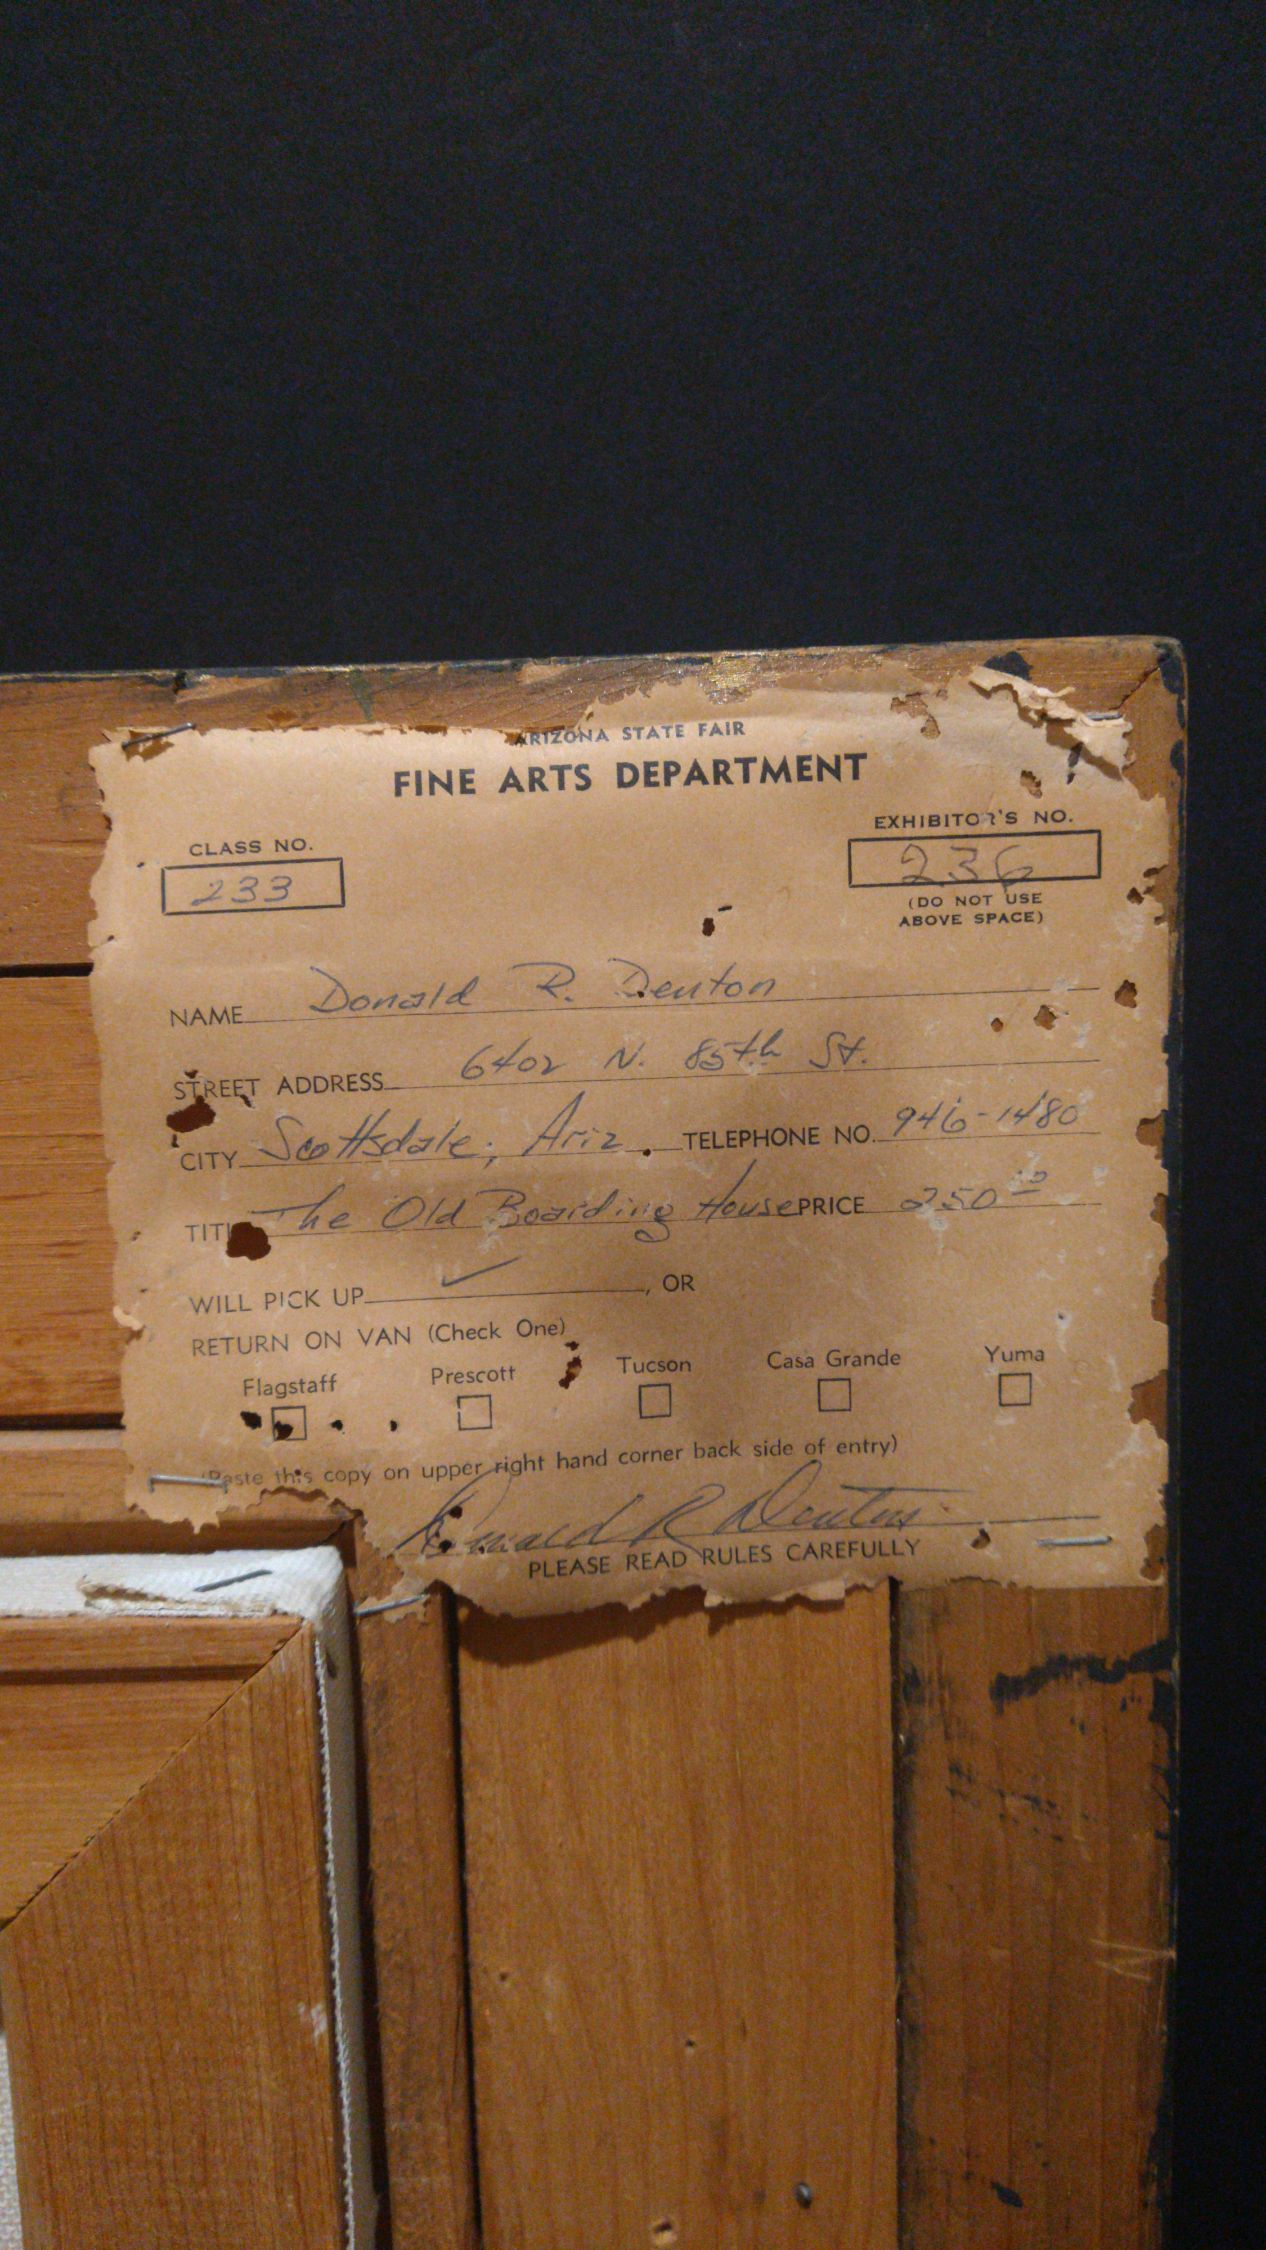 ARIZONA STATE FAIR
FINE ARTS DEPARTMENT
CLASS NO.
233
EXHIBITOR'S NO.
236
(DO NOT USE
ABOVE SPACE)
NAME Donald R. Denton
STREET ADDRESS 6402 N. 85th St.
CITY Scottsdale, Ariz. TELEPHONE NO. 946-1480
TITL The Old Boarding House PRICE 250
WILL PICK UP ✓, OR
RETURN ON VAN (Check One)
Flagstaff Prescott Tucson Casa Grande Yuma
(Paste this copy on upper right hand corner back side of entry)
Donald R Denton
PLEASE READ RULES CAREFULLY